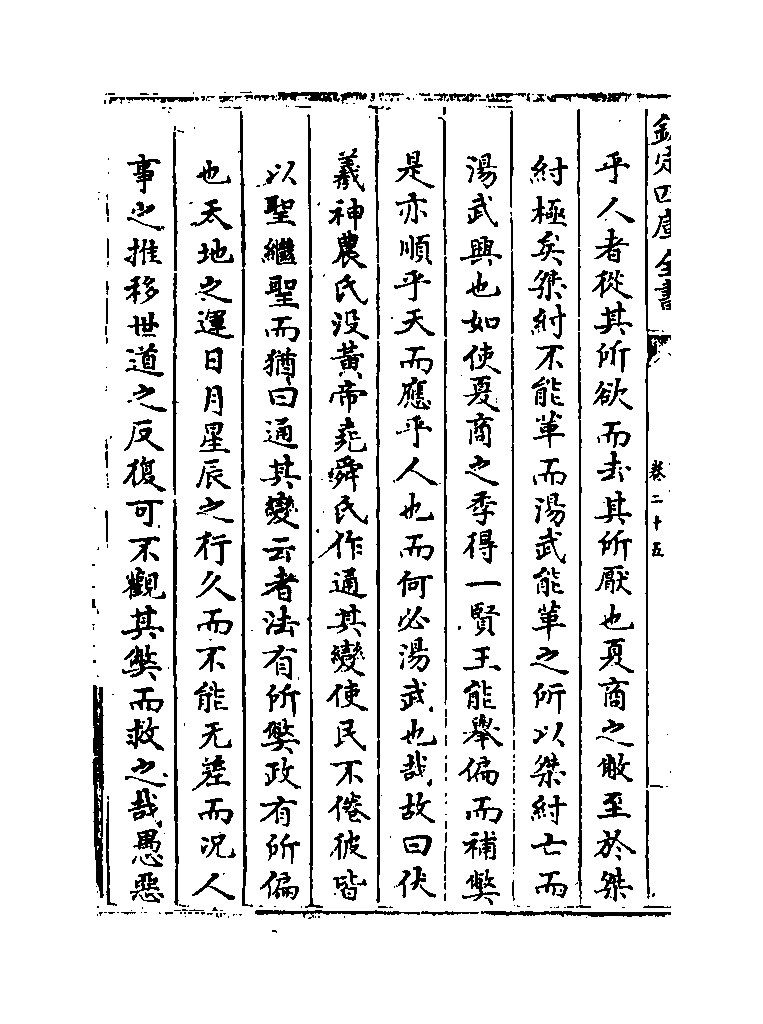 欽定四庫全書
卷二十五
乎人者從其所欲而去其所厭也夏商之敝至於桀
紂極矣桀紂不能革而湯武能革之所以桀紂亡而
湯武興也如使夏商之季得一賢王能舉偏而補獘
是亦順乎天而應乎人也而何必湯武也哉故曰伏
羲神農氏没黃帝堯舜氏作通其變使民不倦彼皆
以聖繼聖而猶曰通其變云者法有所獘政有所偏
也天地之運日月星辰之行久而不能无差而况人
事之推移世道之反復可不觀其獘而救之哉愚惡